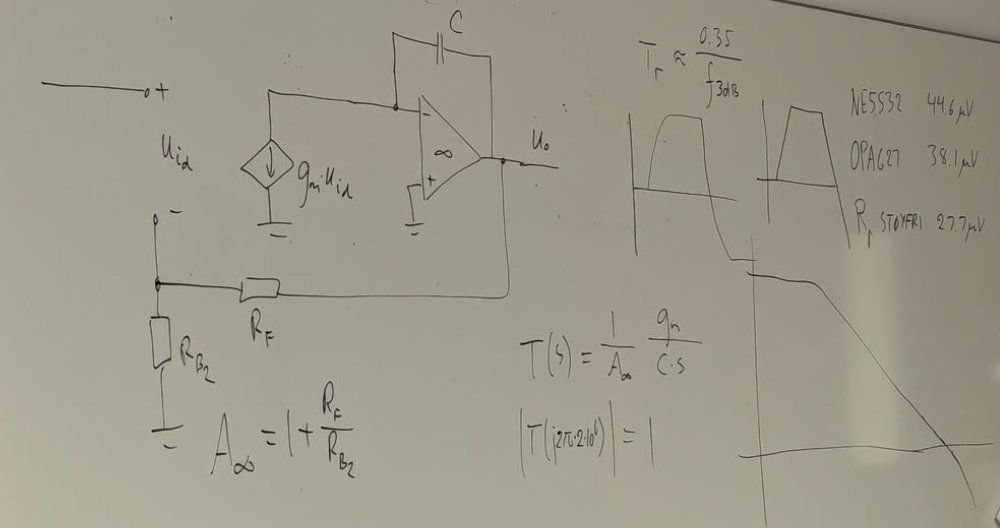 C
+
U_id
g_m U_id
-
∞
+
U_o
-
R_F
R_B2
A_∞ = 1 + R_F / R_B2
T_r ≈ 0.35 / f_3dB
NE5532 44.6 µV
OPA627 38.1 µV
STØYFRI 27.7 µV
T(s) = 1 / A_∞ g_m / C·s
|T(j2π·2·10⁶)| = 1